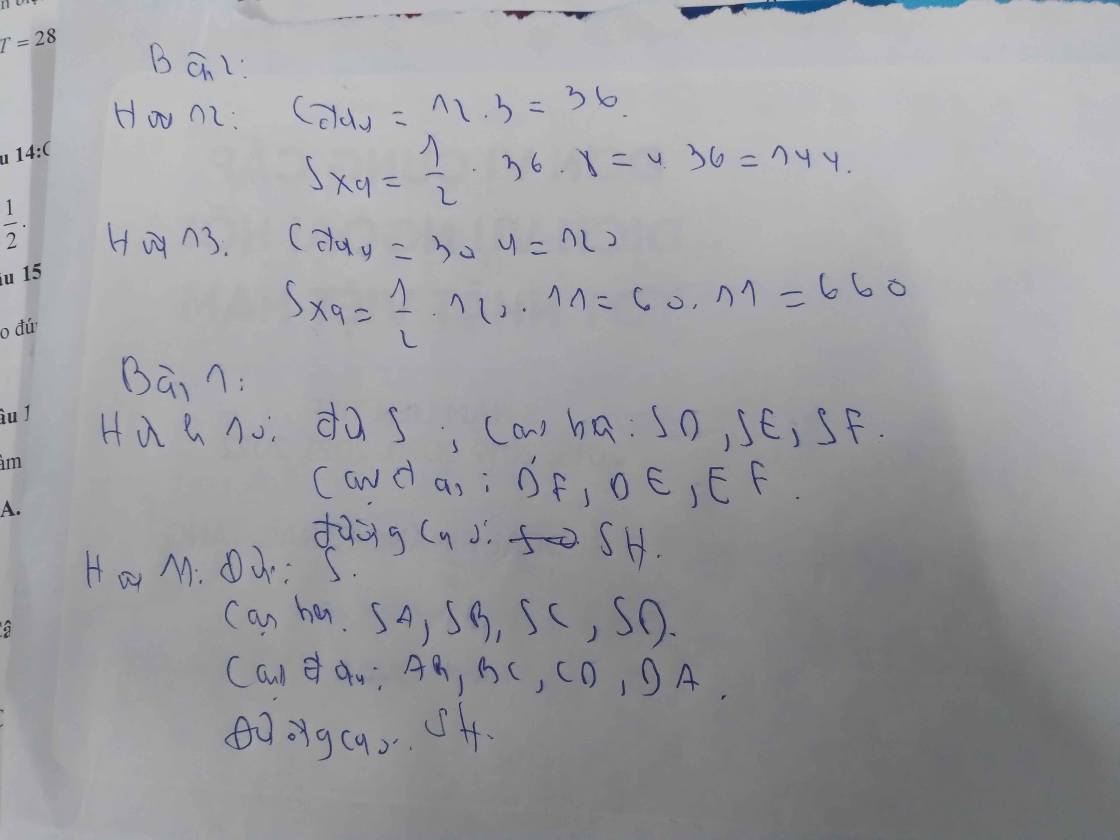 T = 28
Bài 2:
Hình 12: Cđáy = 12.3 = 36.
Sxq = 1/2 . 36 . 8 = 4. 36 = 144.
u 14:C
1/2.
Hình 13. Cđáy = 30 4 = 120
Sxq = 1/2 . 120. 11 = 60. 11 = 660
u 15
o đú
Bài 1:
Hình 10: Đỉnh S ; Cạnh bên: SD, SE, SF.
âu 1
Cạnh đáy: DF, DE, EF.
âm
A.
đường cao: SH.
Hình 11: Đỉnh: S.
Cạnh bên. SA, SB, SC, SD.
Cạnh đáy: AB, BC, CD, DA.
Đường cao. SH.